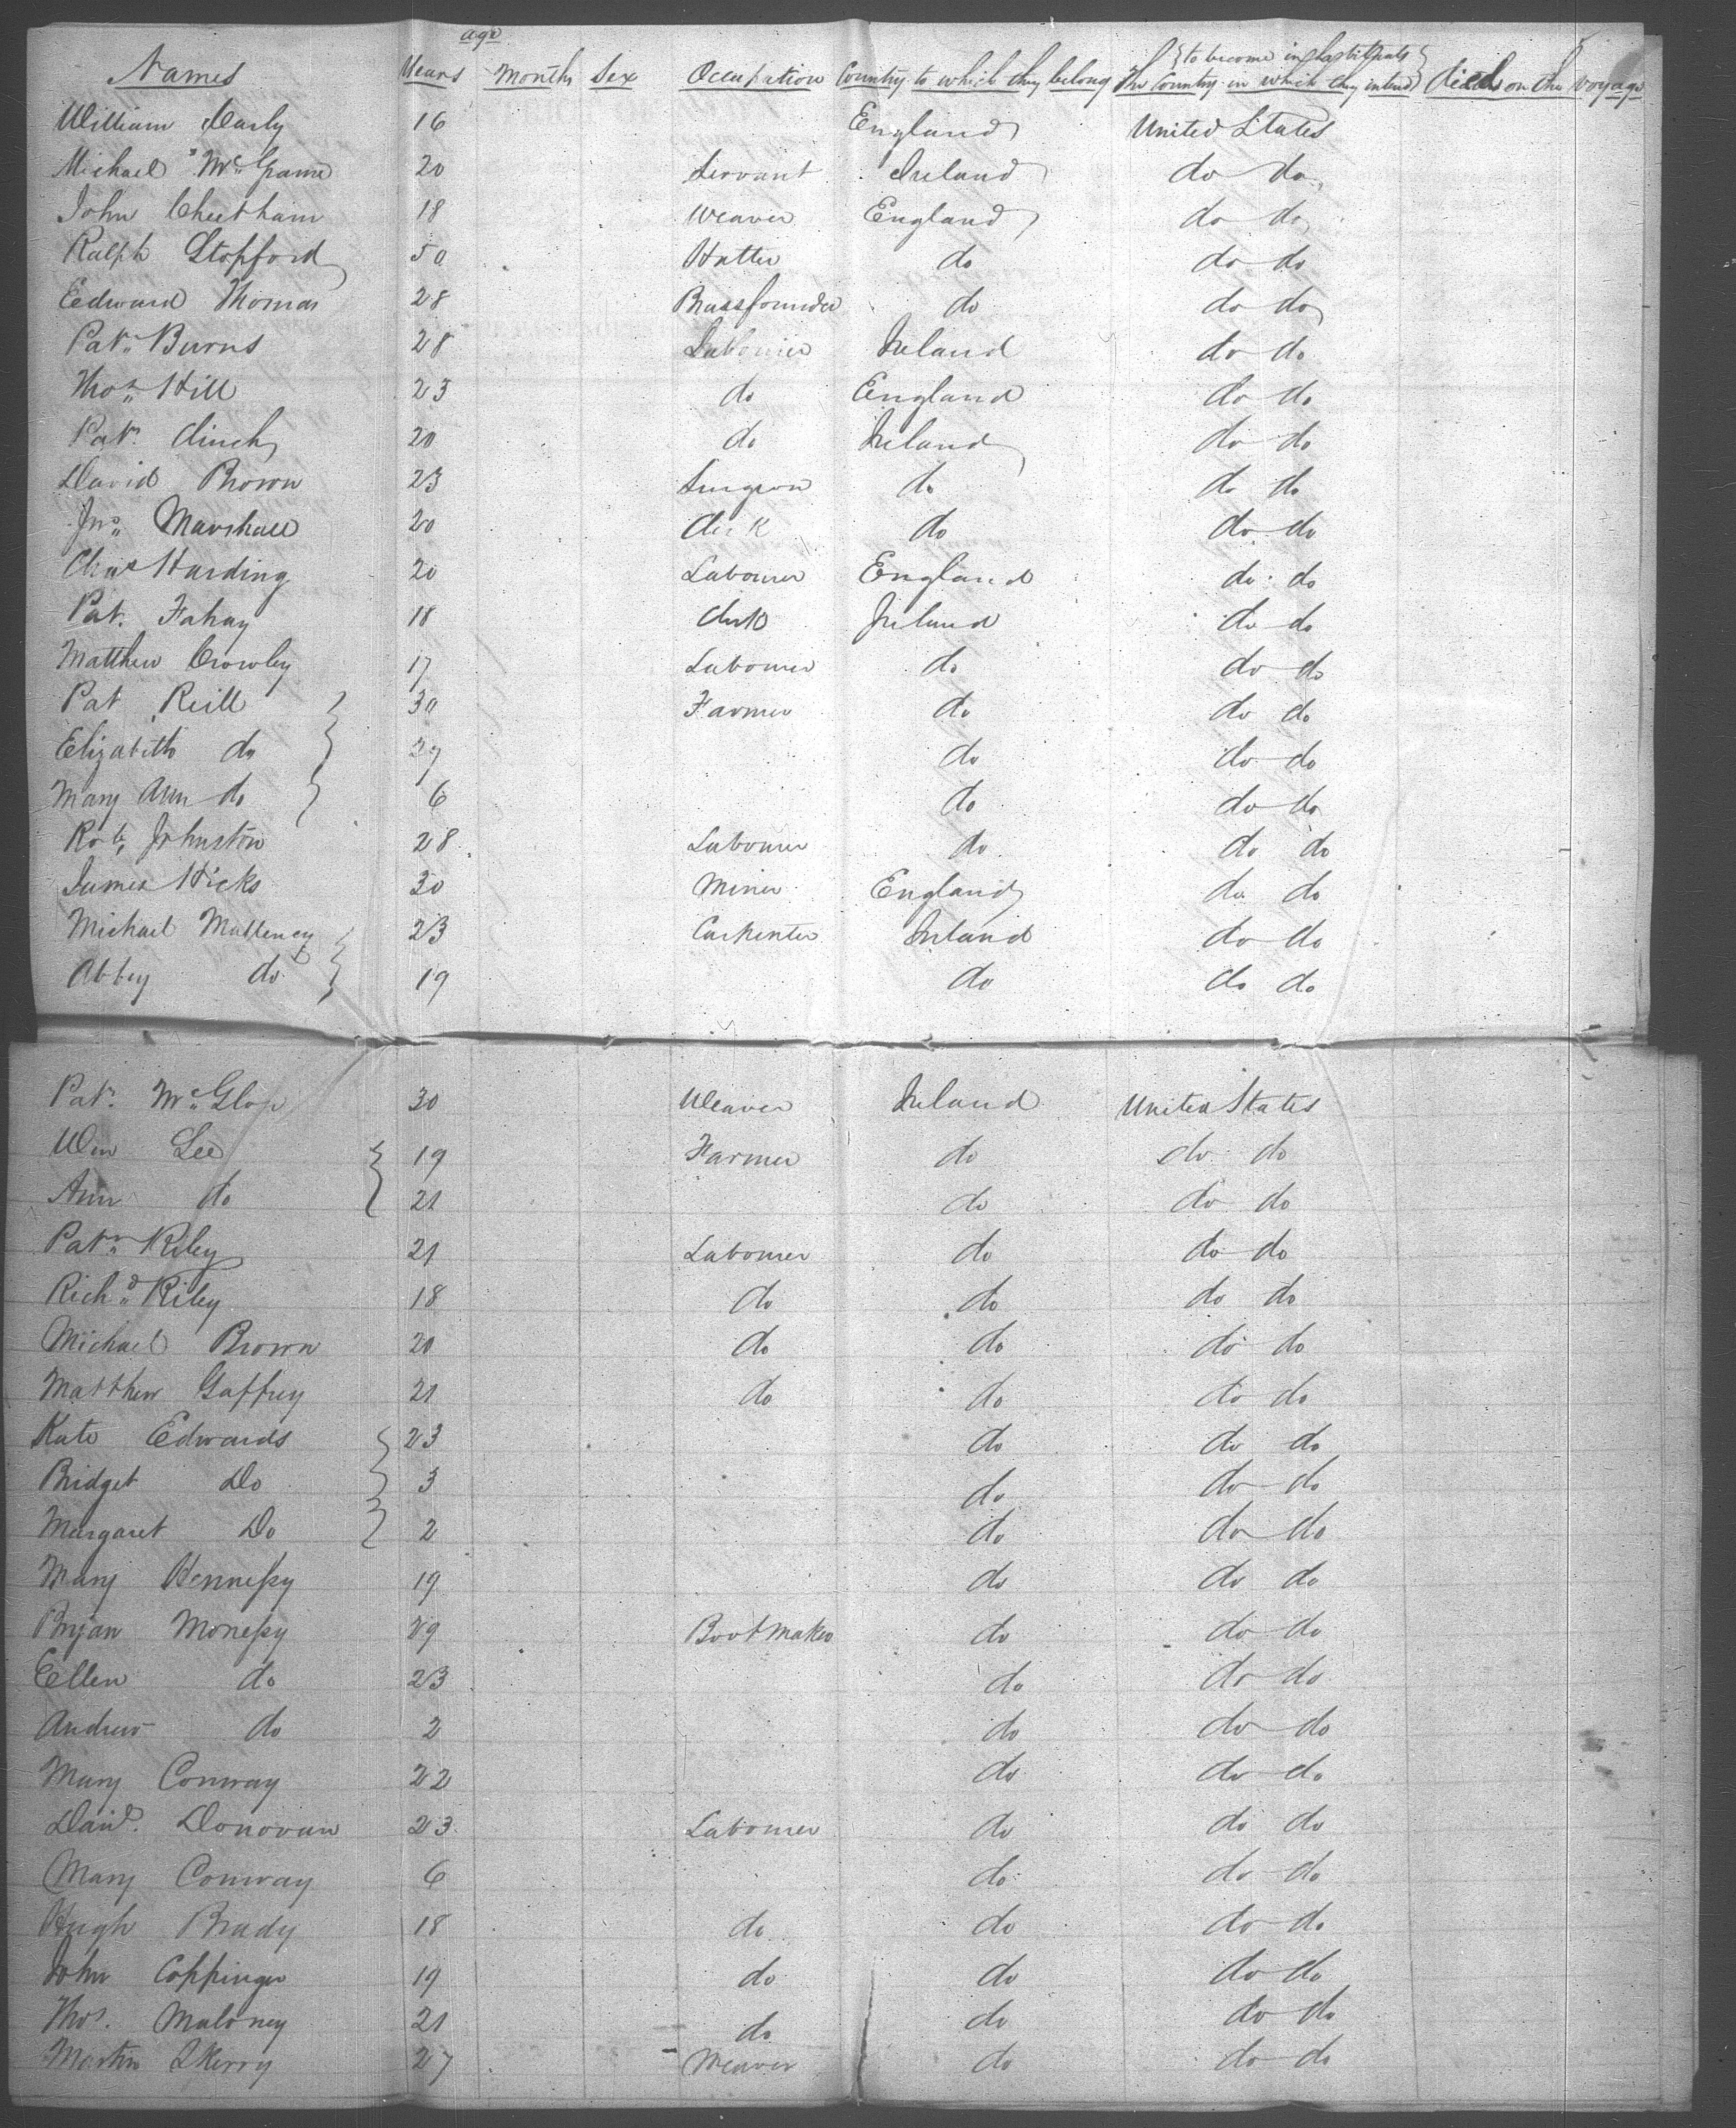 age
{to become inhabitants}
Names Years Months Sex Occupation Country to which they belong The Country in which they intend Died on the voyage
William Early 16 England United States
Michael McGrame 20 Servant Ireland do do
John Cheetham 18 Weaver England do do
Ralph Stopford 50 Hatter do do do
Edward Thomas 28 Brassfounder do do do
Patk. Burns 28 Labourer Ireland do do
Thos. Hill 23 do England do do
Patk. Clinch 20 do Ireland do do
David Brown 23 Surgeon do do do
Jno. Marshall 20 Clerk do do do
Chas Harding 20 Labourer England do do
Pat. Fahay 18 Clerk Ireland do do
Matthew Crowley 17 Labourer do do do
Pat Reill 30 Farmer do do do
Elizabeth do 27 do do do
Mary Ann do 6 do do do
Robt. Johnston 28 Labourer do do do
James Hicks 30 Miner England do do
Michael Mulleney 23 Carpenter Ireland do do
Abbey do 19 do do do
Patk. 30 Weaver Ireland United States
Wm Lee 19 Farmer do do do
Ann do 21 do do do
Patk. Riley 21 Labourer do do do
Richd. Riley 18 do do do do
Michael Brown 20 do do do do
Matthew Gaffney 21 do do do do
Kate Edwards 23 do do do
Bridget Do 3 do do do
Margaret Do 2 do do do
Mary Hennessy 19 do do do
Bryan Monessy 29 Bootmaker do do do
Ellen do 23 do do do
Andrew do 2 do do do
Mary Conway 22 do do do
Danl. Donovan 23 Labourer do do do
Mary Conway 6 do do do
Hugh Brady 18 do do do do
John Coppinger 19 do do do do
Thos. Maloney 21 do do do do
Martin Skerry 27 Weaver do do do